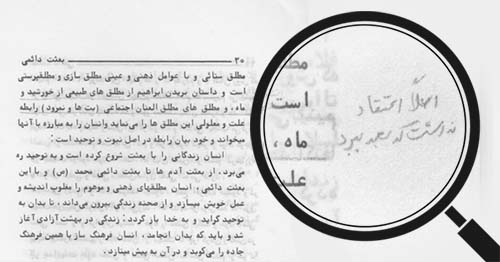 ۲۰ بعثت دائمی
مطلق ستائی و با عوامل ذهنی و عینی مطلق سازی و مطلقپرستی
است و داستان بریدن ابراهیم از مطلق های طبیعی از خورشید و
ماه، و مطلق های مطلق العنان اجتماعی (بت ها و نمرود) رابطه
علت و معلولی این مطلق ها را می‌نماید وانسان را به مبارزه با آنها
میخواند و خود بیان رابطه در اصل نبوت و توحید است:
انسان زندگانی را با بعثت شروع کرده است و به توحید ره
می‌برد، از بعثت آدم ها تا بعثت دائمی محمد (ص) و با این
بعثت دائمی، انسان مطلقهای ذهنی و موهوم را مغلوب اندیشه و
عمل خویش میسازد و از صحنه زندگی بیرون می‌داند، تا بدان به
توحید گراید و به خدا باز گردد: زندگی در بهشت آزادی آغاز
شد و باید که بدان انجامد، انسان فرهنگ ساز با همین فرهنگ
جاده را می‌کوبد و در آن به پیش میتازد.
مطلق
است
ماه،
علت
اصلاً اعتقاد
نداشت که بعد بمیرد